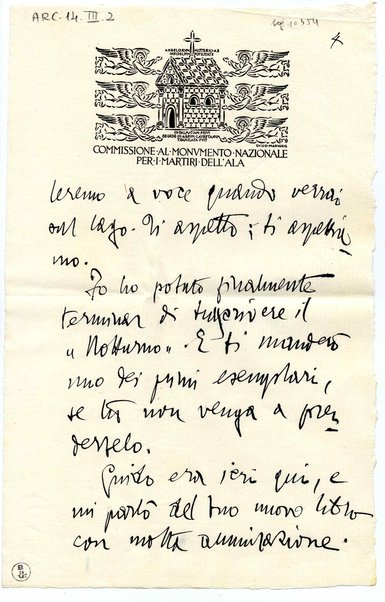 ARC. 14. III. 2
4
COMMISSIONE·AL·MONVMENTO·NAZIONALE
PER·I·MARTIRI·DELL'ALA
leremo a voce quando verrai
sul lago. Ti aspetto; ti aspettia-
mo.
Io ho potuto finalmente
terminar di trascrivere il
"Notturno". E ti manderò
uno dei primi esemplari,
se tu non venga a pren-
dertelo.
Guido era ieri qui, e
mi parlò del tuo nuovo libro
con molta ammirazione.